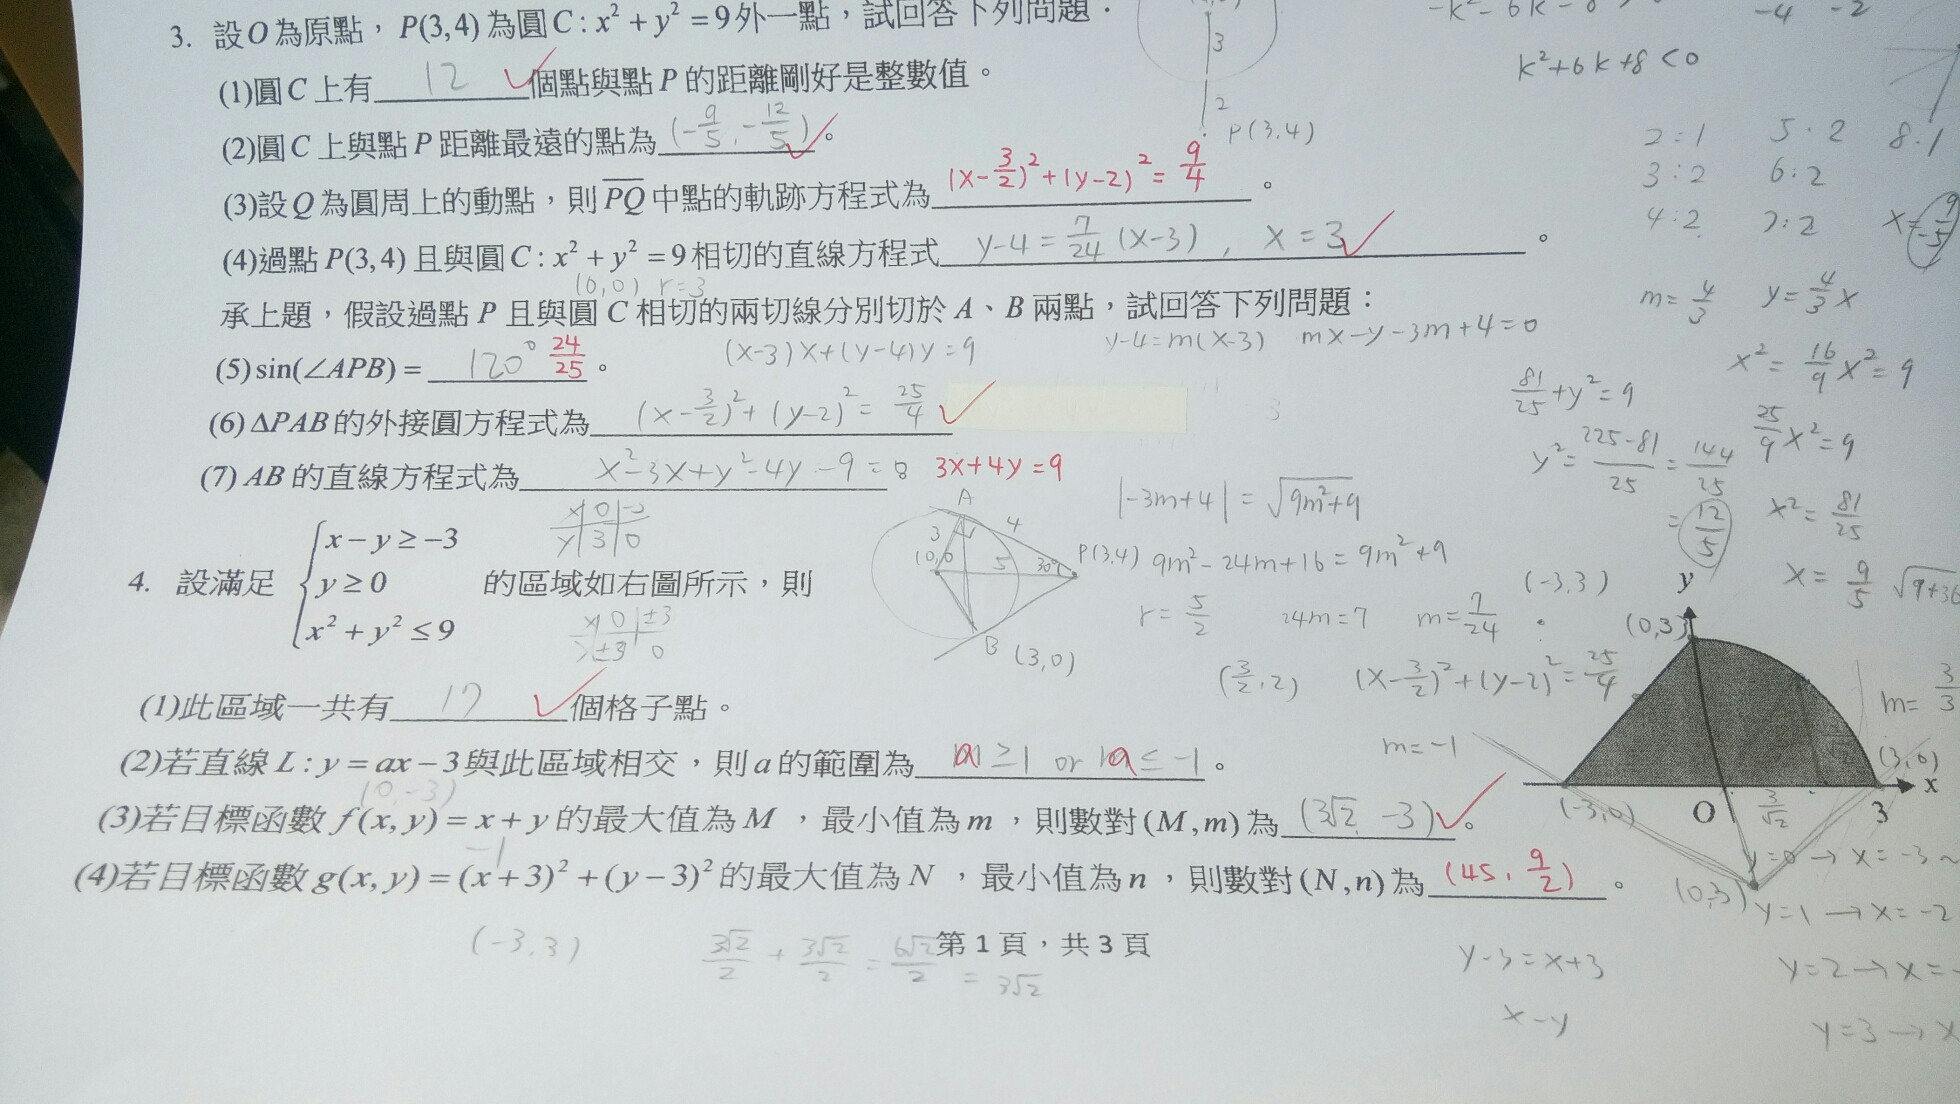 3. 設O為原點，P(3,4)為圓C:x²+y²=9外一點，試回答下列問題：
(1)圓C上有 12 個點與點P的距離剛好是整數值。
(2)圓C上與點P距離最遠的點為 (-9/5, -12/5)。
(3)設Q為圓周上的動點，則PQ中點的軌跡方程式為 (x-3/2)²+(y-2)²=9/4。
(4)過點P(3,4)且與圓C:x²+y²=9相切的直線方程式 y-4=7/24(x-3), x=3。
(0,0) r=3
承上題，假設過點P且與圓C相切的兩切線分別切於A、B兩點，試回答下列問題：
(5)sin(∠APB)= 120° 24/25。
(x-3)x+(y-4)y=9
y-4=m(x-3) mx-y-3m+4=0
(6)ΔPAB的外接圓方程式為 (x-3/2)²+(y-2)²=25/4
(7)AB的直線方程式為 x²-3x+y²-4y-9=0 3x+4y=9
4. 設滿足 { x-y≥-3
y≥0
x²+y²≤9 的區域如右圖所示，則
(1)此區域一共有 17 個格子點。
(2)若直線L:y=ax-3與此區域相交，則a的範圍為 a≥1 or a≤-1。
(0,-3)
(3)若目標函數f(x,y)=x+y的最大值為M，最小值為m，則數對(M,m)為 (3√2, -3)。
(4)若目標函數g(x,y)=(x+3)²+(y-3)²的最大值為N，最小值為n，則數對(N,n)為 (45, 9/2)。
(-3,3) 3√2/2 + 3√2/2 = 6√2/2 = 3√2
第 1 頁，共 3 頁
3
2
P(3.4)
k²+6k+8<0
-4 -2
2:1 5.2 8.1
3:2 6:2
4:2 7:2
m=4/3 y=4/3x
x²=16/9x²=9
81/25+y²=9 25/9x²=9
y²=225-81/25=144/25 x²=81/25
=12/5
x=9/5
x 0
y 3 0
x 0 ±3
y ±3 0
A
3 4
(0,0 5 30° P(3.4)
B (3,0)
|-3m+4|=√9m²+9
9m²-24m+16=9m²+9
r=5/2 24m=7 m=7/24
(3/2,2) (x-3/2)²+(y-2)²=25/4
(-3,3)
y
(0,3)
m=3/3
m=-1
(3,0)
x
(-3,0) O 3/√2 3
y=0→x=-3~
(0,3) y=1→x=-2
y-3=x+3 y=2→x=-
x-y
y=3→x